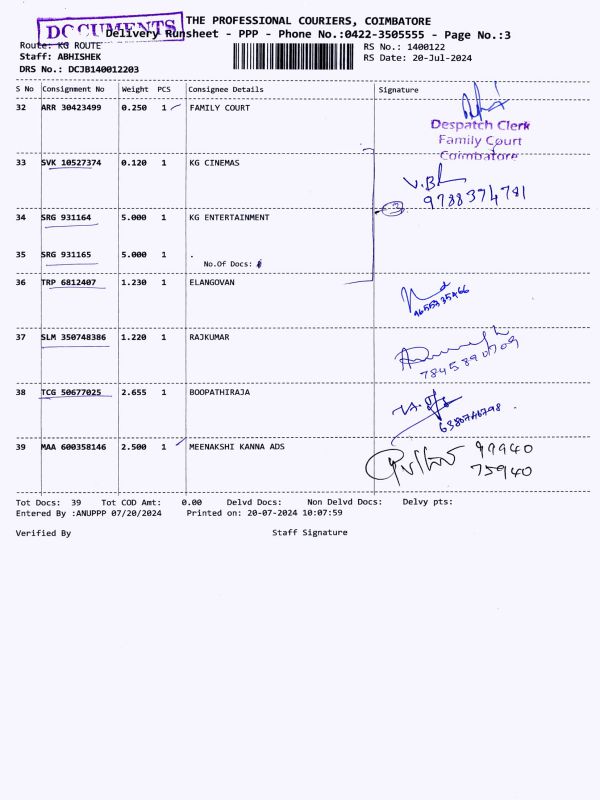 DOCUMENTS
THE PROFESSIONAL COURIERS, COIMBATORE
Delivery Runsheet - PPP - Phone No.:0422-3505555 - Page No.:3
Route: KG ROUTE
RS No.: 1400122
Staff: ABHISHEK
RS Date: 20-Jul-2024
DRS No.: DCJB140012203
S No Consignment No Weight PCS Consignee Details Signature
32 ARR 30423499 0.250 1 FAMILY COURT
Despatch Clerk
Family Court
Coimbatore
33 SVK 10527374 0.120 1 KG CINEMAS
9788374781
34 SRG 931164 5.000 1 KG ENTERTAINMENT
3
35 SRG 931165 5.000 1 .
No.Of Docs:
36 TRP 6812407 1.230 1 ELANGOVAN
37 SLM 350748386 1.220 1 RAJKUMAR
7845890709
38 TCG 50677025 2.655 1 BOOPATHIRAJA
39 MAA 600358146 2.500 1 MEENAKSHI KANNA ADS
99940
75940
Tot Docs: 39 Tot COD Amt: 0.00 Delvd Docs: Non Delvd Docs: Delvy pts:
Entered By :ANUPPP 07/20/2024 Printed on: 20-07-2024 10:07:59
Verified By Staff Signature